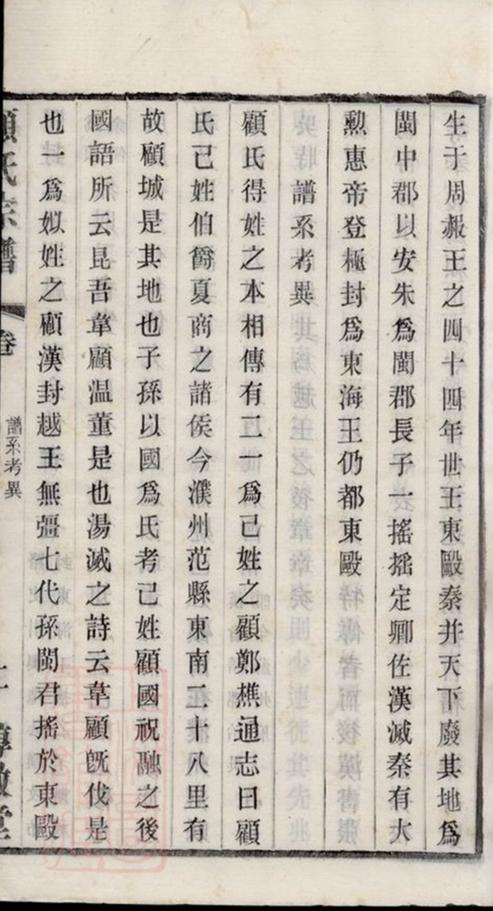 生于周赧王之四十四年世王東甌秦并天下廢其地爲
閩中郡以安朱爲閩郡長子一搖搖定卿佐漢滅秦有大
勲惠帝登極封爲東海王仍都東甌
譜系考異
顧氏得姓之本相傳有二一爲己姓之顧鄭樵通志曰顧
氏己姓伯爵夏商之諸侯今濮州范縣東南二十八里有
故顧城是其地也子孫以國爲氏考己姓顧國祝融之後
國語所云昆吾韋顧温董是也湯滅之詩云韋顧旣伐是
也一爲姒姓之顧漢封越王無彊七代孫閩君搖於東甌
顧氏宗譜
卷
譜系考異